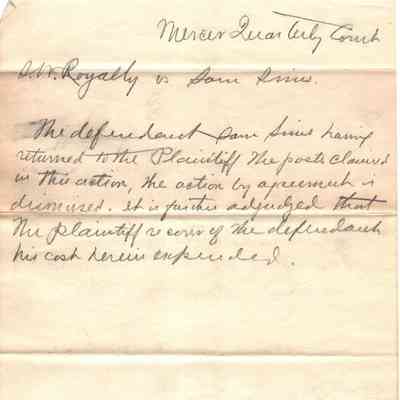 Mercer Quarterly Court
S.W. Royalty vs Sam Sims.
The defendant Sam Sims having
returned to the Plaintiff the posts claimed
in this action, the action by agreement is
dismissed. it is further adjudged that
the plaintiff recover of the defendant
his cost herein expended.